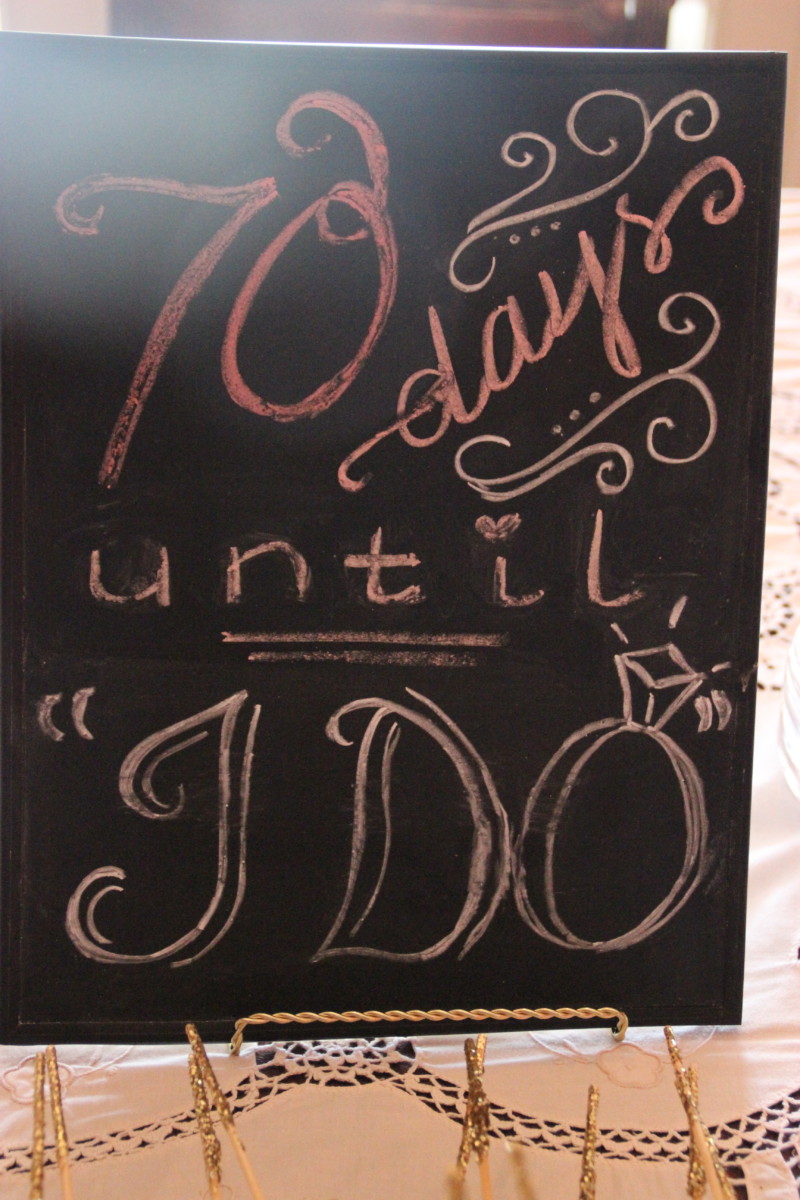 70
days
until
"I DO"